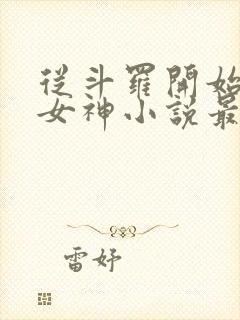 從斗羅開始
女神小說最
雷妤